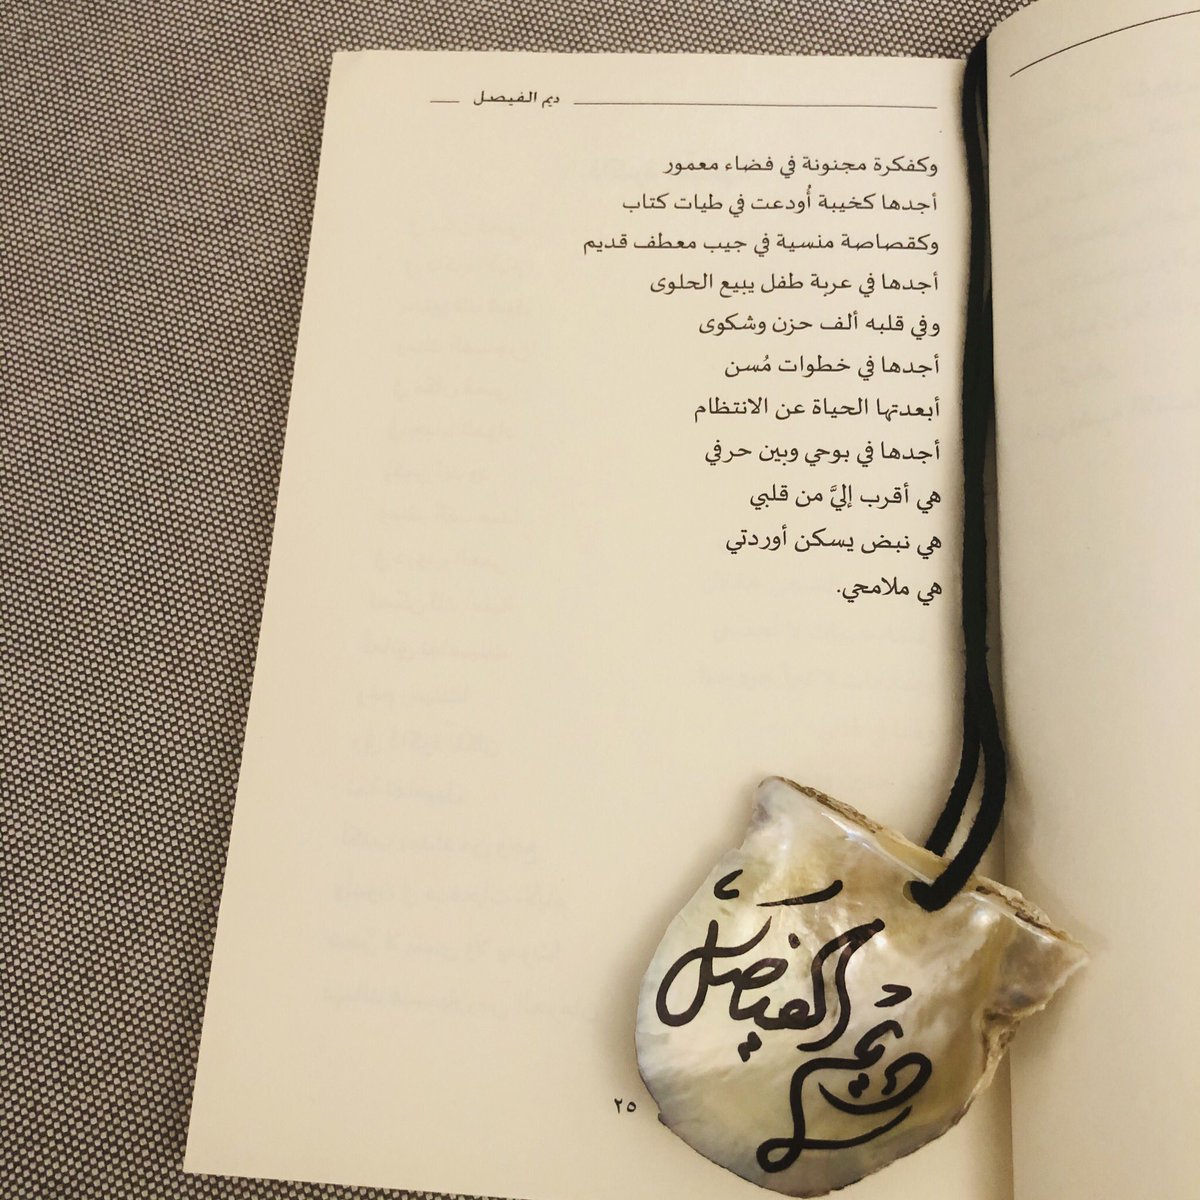 ديم الفيصل
وكفكرة مجنونة في فضاء معمور
أجدها كخيبة أُودعت في طيات كتاب
وكقصاصة منسية في جيب معطف قديم
أجدها في عربة طفل يبيع الحلوى
وفي قلبه ألف حزن وشكوى
أجدها في خطوات مُسن
أبعدتها الحياة عن الانتظام
أجدها في بوحي وبين حرفي
هي أقرب إليَّ من قلبي
هي نبض يسكن أوردتي
هي ملامحي.
ديم الفيصل
٢٥